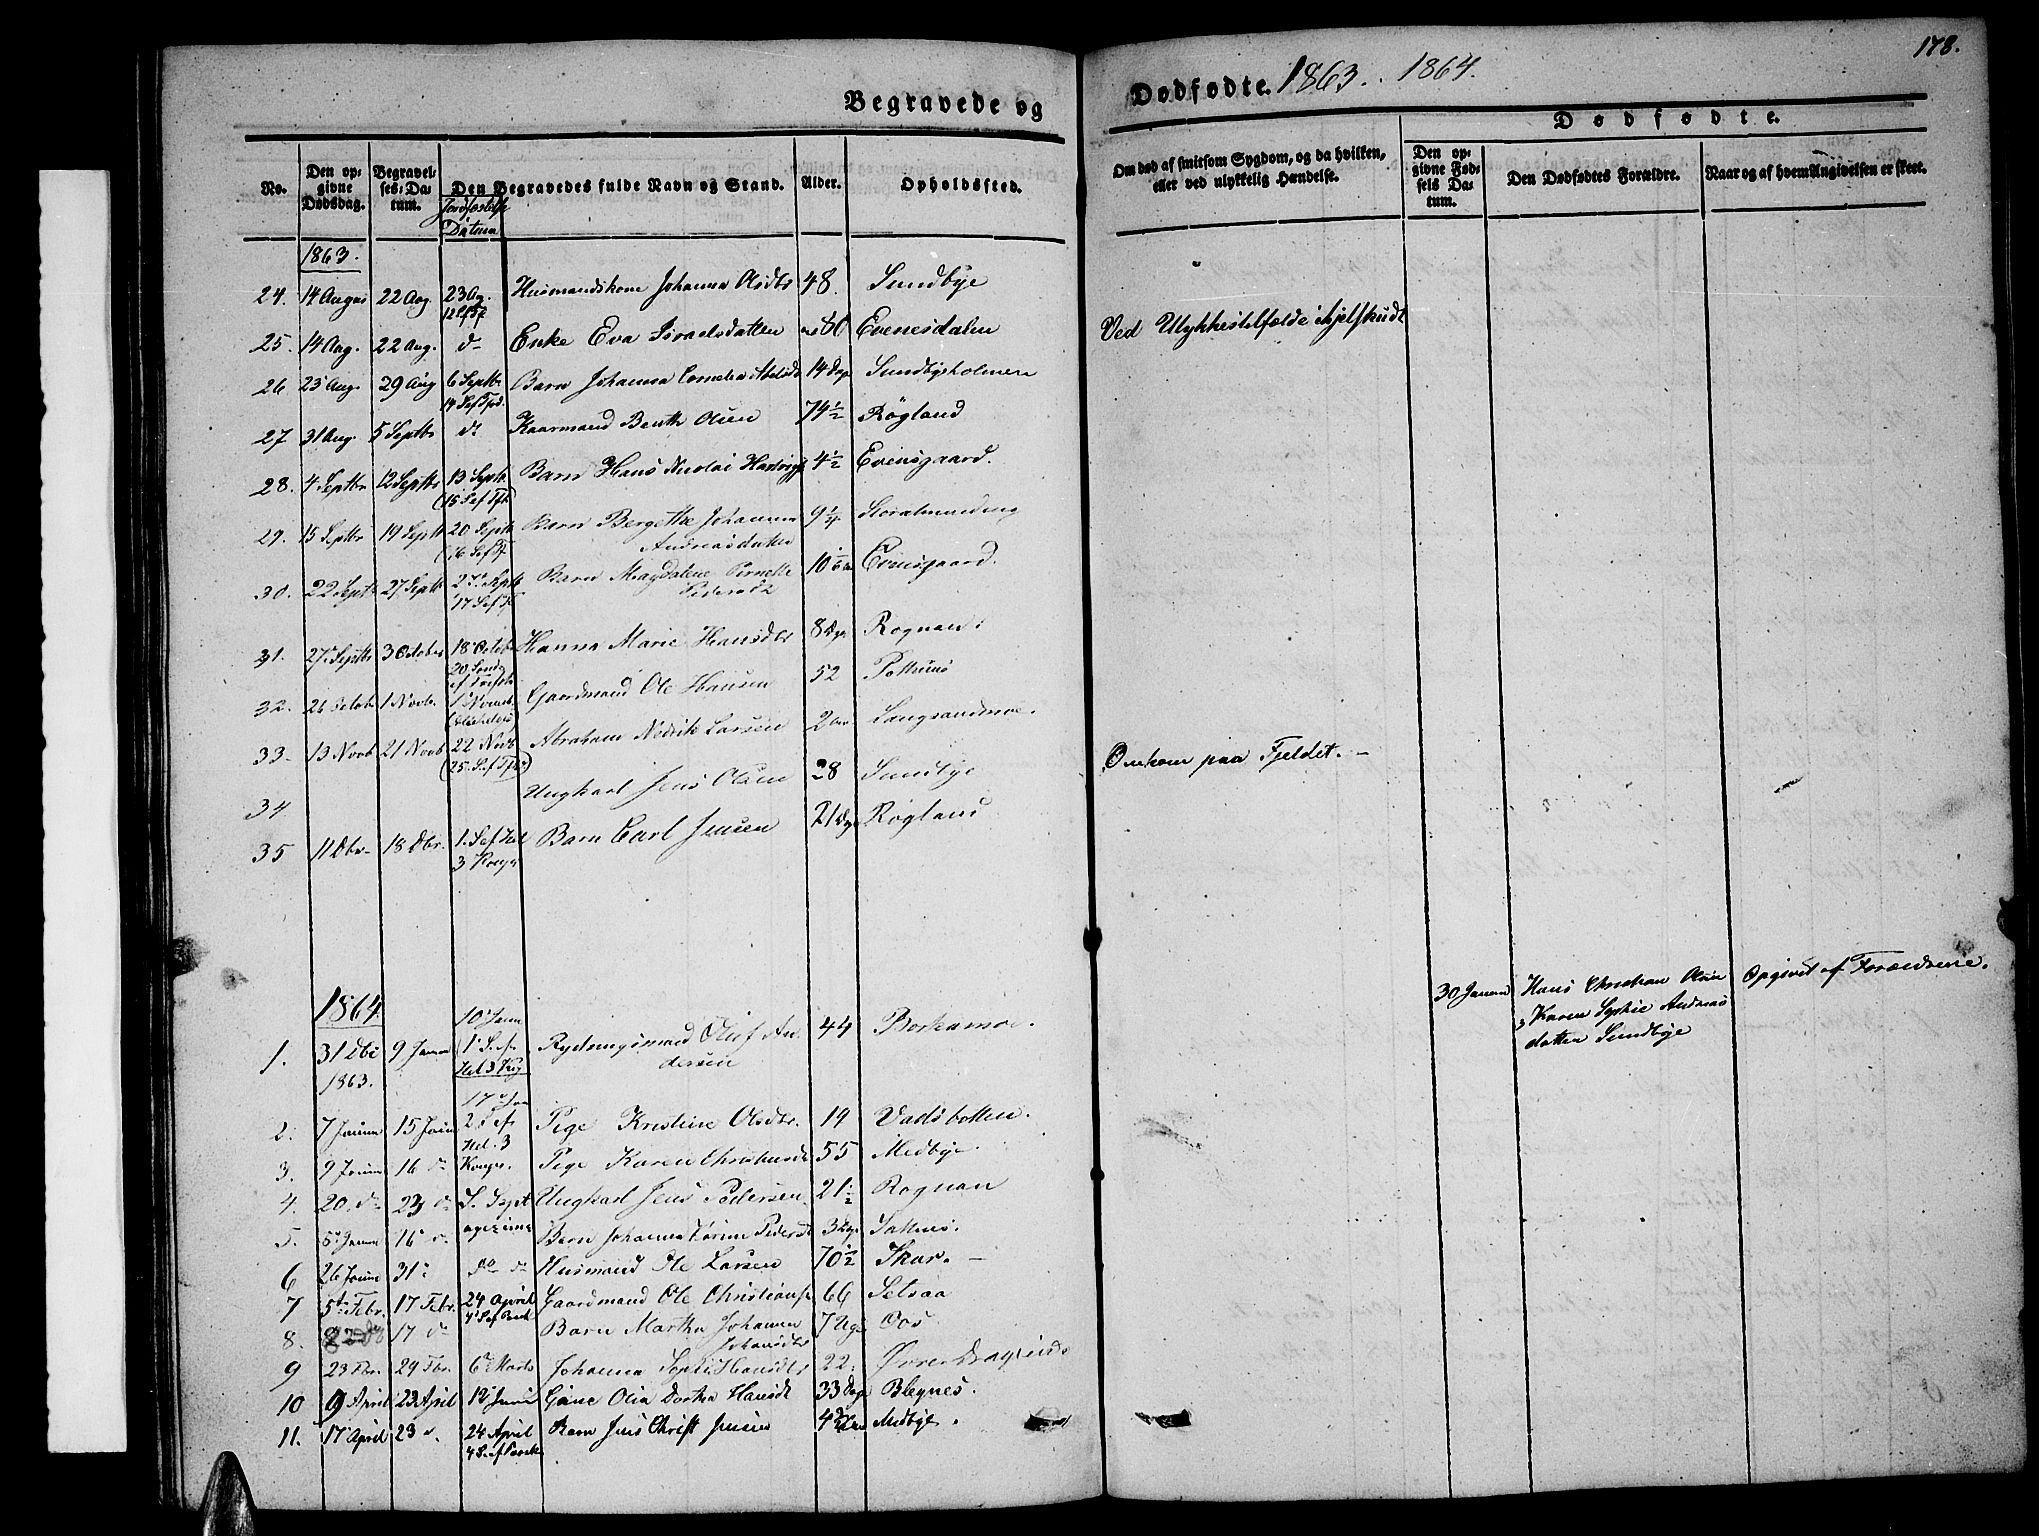 178.
Begravede og Dødfødte. 1863. 1864.
No.
Den opgivne Dødsdag.
Begravelses-Datum.
Den Begravedes fulde Navn og Stand.
Jordfæstelse Datum
Alder.
Opholdssted.
Om død af smitsom Sygdom, og da hvilken, eller ved ulykkelig Hændelse.
Dødfødte.
Den opgivne Fødsels Datum.
Den Dødfødtes Forældre.
Naar og af hvem Angivelsen er skeet.
1863.
24. 14 August 22 Aug. 23 Ag. Husmandskone Johanna Olsdtr 48. Sundbye
25. 14 Aug. 22 Aug. do Enke Eva Israelsdatter 80 Evenesdalen Ved Ulykkestilfælde ihjelskudt
26 23 Aug. 29 Aug 6 Septbr Barn Johanna Cornelia Abelsdt 14 Dage Sundbyholmen
27 31 Aug. 5 Septbr do Kaarmand Benth Olsen 74½ Røgland
28. 4 Septbr 12 Septbr 13 Septb Barn Hans Nicolai Hartvigs 4½ Evensgaard.
29. 15 Septbr 19 Septbr 20 Septb Barn Bergethe Johanna
Andreasdatter 9¼ Storalmending
30. 22 Septb 27 Septb 27 Septb Barn Magdalene Pernelle
Pedersdt 10 Evensgaard.
31. 27 Septbr 3 October 18 Octob Hanna Marie Hansdtr 8 Dge Rognan
32. 26 Octob 1 Novb. 1 Novemb Gaardmand Ole Hansen 52 Pothuus
33 13 Novb 21 Novb 22 Novb Abraham Nedrik Larsen 2 Langsandmoe.
34 Ungkarl Jens Olsen 28 Sundbye Omkom paa Fjeldet.
35 11 Dbr 18 Dbr. 1. S ef Hel 3 Kong Barn Carl Jensen 21 Dge Røgland
1864.
30 Januar Hans Christian Olsen Opgivet af Forældrene.
Karen Sophie Andreas
datter Sundbye
1. 31 Dbr 1863. 9 Januar 10 Janu 1 S. ef. Hel 3 Kog Rydningsmand Oluf An
dersen 44 Borkamoe.
2. 7 Januar 15 Janu 17 Jan 2 S ef. Hel. 3 Konge. Pige Kristine Olsdtr. 19 Vadsbotten.
3. 9 Januar 16 do Pige Karen Christensdt 55 Medbye.
4. 20. do 23 do S. Sept Ungkarl Jens Pedersen 21½ Rognan
5. 5 Janu 16 do agesima Barn Johanna Karine Pedersdt 3 Dge Saltnes.
6 26 Janu 31 do do Husmand Ole Larsen 70½ Skar.
7 5te Febr. 17 Febr. 24 April Gaardmand Ole Christians 66 Setsaa
8. 8 do 17 do Barn Martha Johanna
Johansdtr 7 Uger Oos
9 23 Fbr. 29 Fbr. 6 Marts Johanna Sophi Hansdtr 22. Øvre
10 9 April 23 April 19 Juni Gine Olia Dorthea Hansdt 33 Dage Blegnes.
11. 17 April 23 do. 24 April 4 S. ef Paaske Barn Jens Christ Jensen 4 Medbye.